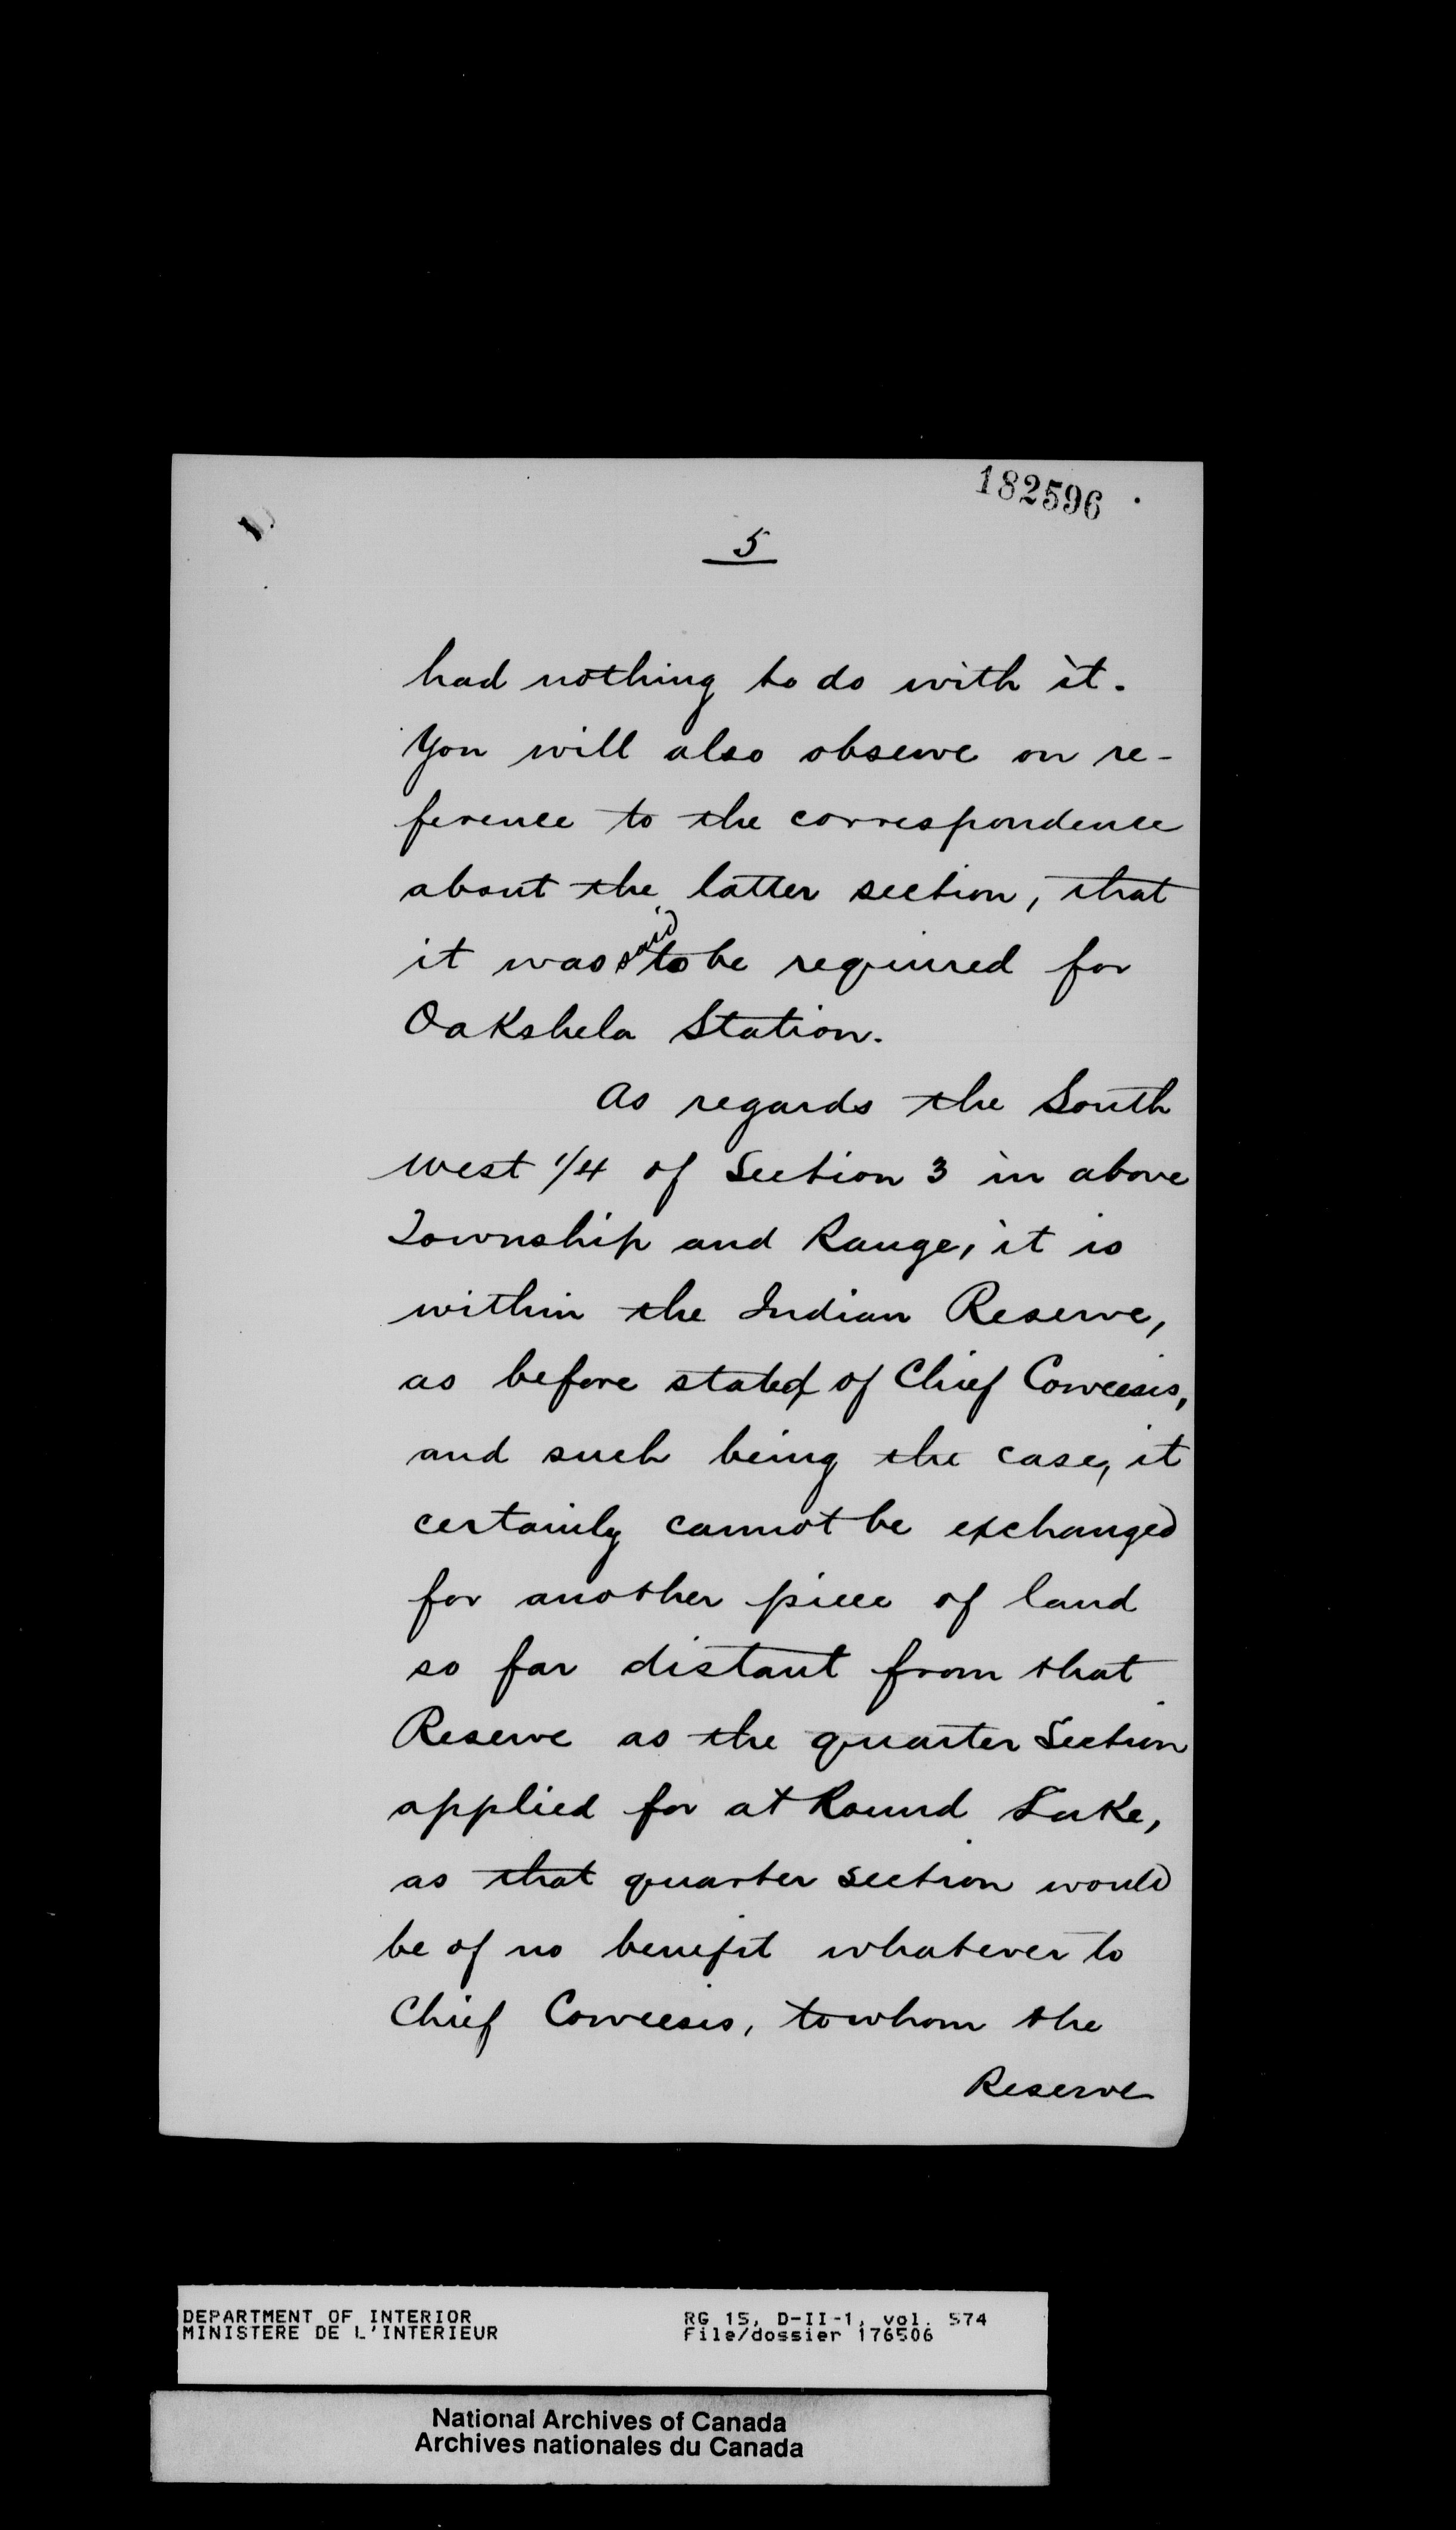 182596
5
had nothing to do with it.
You will also observe on re-
ference to the correspondence
about the latter section, that
it was said to be required for
Oakshela Station.
As regards the South
West 1/4 of Section 3 in above
Township and Range, it is
within the Indian Reserve,
as before stated of Chief Coweesis,
and such being the case, it
certainly cannot be exchanged
for another piece of land
so far distant from that
Reserve as the quarter Section
applied for at Round Lake,
as that quarter section would
be of no benefit whatever to
Chief Coweesis, to whom the
Reserve
DEPARTMENT OF INTERIOR
MINISTERE DE L'INTERIEUR
RG 15, D-II-1, vol. 574
File/dossier 176506
National Archives of Canada
Archives nationales du Canada